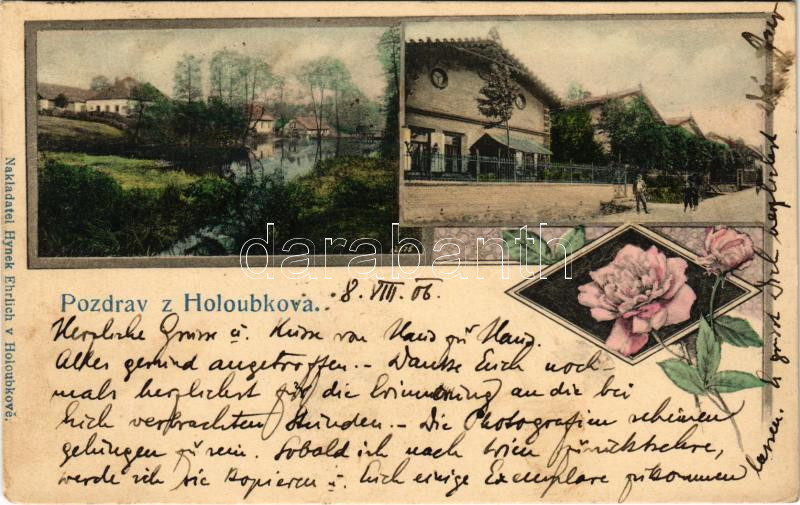 Pozdrav z Holoubkova.
8. VIII. 06.
Herzliche Grüsse u. Küsse von Haus zu Haus.
Alles gesund angetroffen. - Danke Euch noch-
mals herzlichst für die Erinnerung an die bei
Euch verbrachten Stunden. - Die Photografien scheinen
gelungen zu sein. Sobald ich nach Wien zurückkehre,
werde ich sie kopieren u. Euch einige Exemplare zukommen
lassen. Es grüsst Dich herzlichst
Nakladatel Hynek Ehrlich v Holoubkově.
darabanth
.com